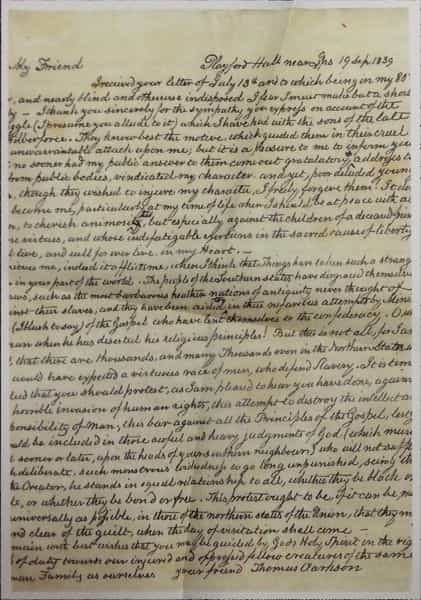 My Friend Playford Hall near Ips 19 Sep. 1839
I received your letter of July 13th and to which being in my 80
, and nearly blind and otherwise indisposed I fear I must make but a short
ly — I thank you sincerely for the sympathy you express on account of the
ggle (I presume you allude to it) which I have had with the sons of the late
ilberforce. They know best the motive, which guided them in their cruel
unwarrantable attack upon me; but it is a pleasure to me to inform you
no sooner had my public answer to them come out gratulatory addresses to
from public bodies, vindicated my character and yet, poor deluded young
n, though they wished to injure my character, I freely forgive them! It do
become me, particularly at my time of life when I should be at peace with al
n, to cherish animosity, but especially against the children of a deceased
se virtues, and whose indefatigable exertions in the sacred cause of liberty
d love, and will for ever live, in my Heart. —
rieves me, indeed it afflicts me, when I think that Things have taken such a strang
in your part of the world. The people of the Southern states have disgraced themselve
aws, such as the most barbarous heathen nations of antiquity never thought of
inst their slaves, and they have been aided in this nefarious attempt by Minis
(I blush to say) of the Gospel who have lent themselves to the confederacy. O
man when he has deserted his religious principles! But this is not all, for I
, that there are thousands, and many Thousands even in the Northern States
would have expected a virtuous race of men, who defend Slavery. It is
ted that you should protest, as I am pleased to hear you have done, against
horrible invasion of human rights, this attempt to destroy the intellect a
ponsibility of Man, this bar against all the Principles of the Gospel, lest
uld be included in those awful and heavy judgments of God (which must
sooner or later, upon the heads of your southern neighbours) who will not suffe
h deliberate, such monstrous wickedness to go long unpunished, seeing th
the Creator, he stands in equal relationship to all, whether they be black o
te, or whether they be bond or free. This protest ought to be if it can be ma
universally as possible, in those of the northern states of the Union, that they m
nd clear of the guilt, when the day of visitation shall come —
main with best wishes that you may be guided by Gods Holy Spirit in the rig
of duty towards our injured and oppressed fellow creatures of the same
man Family as ourselves your friend Thomas Clarkson